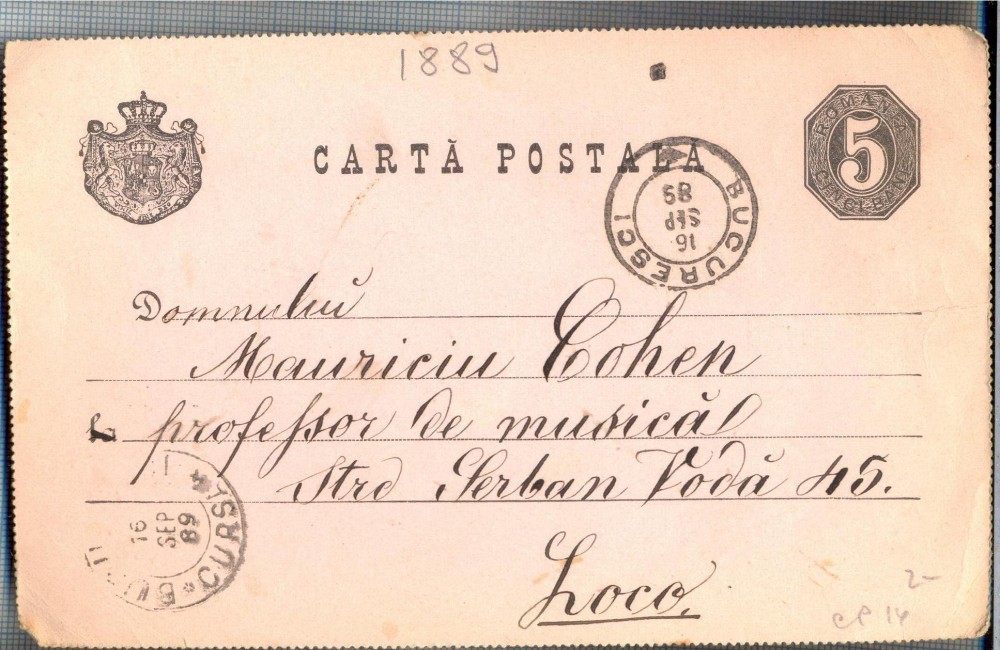 1889
CARTĂ POSTALA
ROMANIA
5
CINCI BANI
BUCURESCI
16
SEP
89
Domnului
Mauriciu Cohen
professor de musică
Strd Serban Vodă 45.
Loco.
CURSA I
16
SEP
89
2-
CP 14